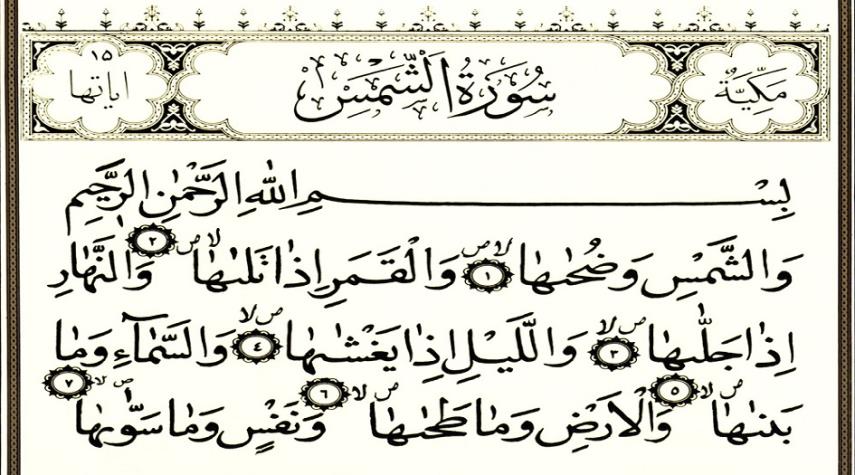 مَكِّيَّةٌ سُورَةُ الشَّمْسِ ١٥ اياتها
بِسْمِ اللّٰهِ الرَّحْمٰنِ الرَّحٖيمِ
وَالشَّمْسِ وَضُحٰيهَا ۙ ص ﴿١﴾ وَالْقَمَرِ اِذَا تَلٰيهَا ۙ ص ﴿٢﴾ وَالنَّهَارِ
اِذَا جَلّٰيهَا ۙ ص ﴿٣﴾ وَالَّيْلِ اِذَا يَغْشٰيهَا ۙ ص ﴿٤﴾ وَالسَّمَٓاءِ وَمَا
بَنٰيهَا ۙ ص ﴿٥﴾ وَالْاَرْضِ وَمَا طَحٰيهَا ۙ ص ﴿٦﴾ وَنَفْسٍ وَمَا سَوّٰيهَا ۙ ص ﴿٧﴾